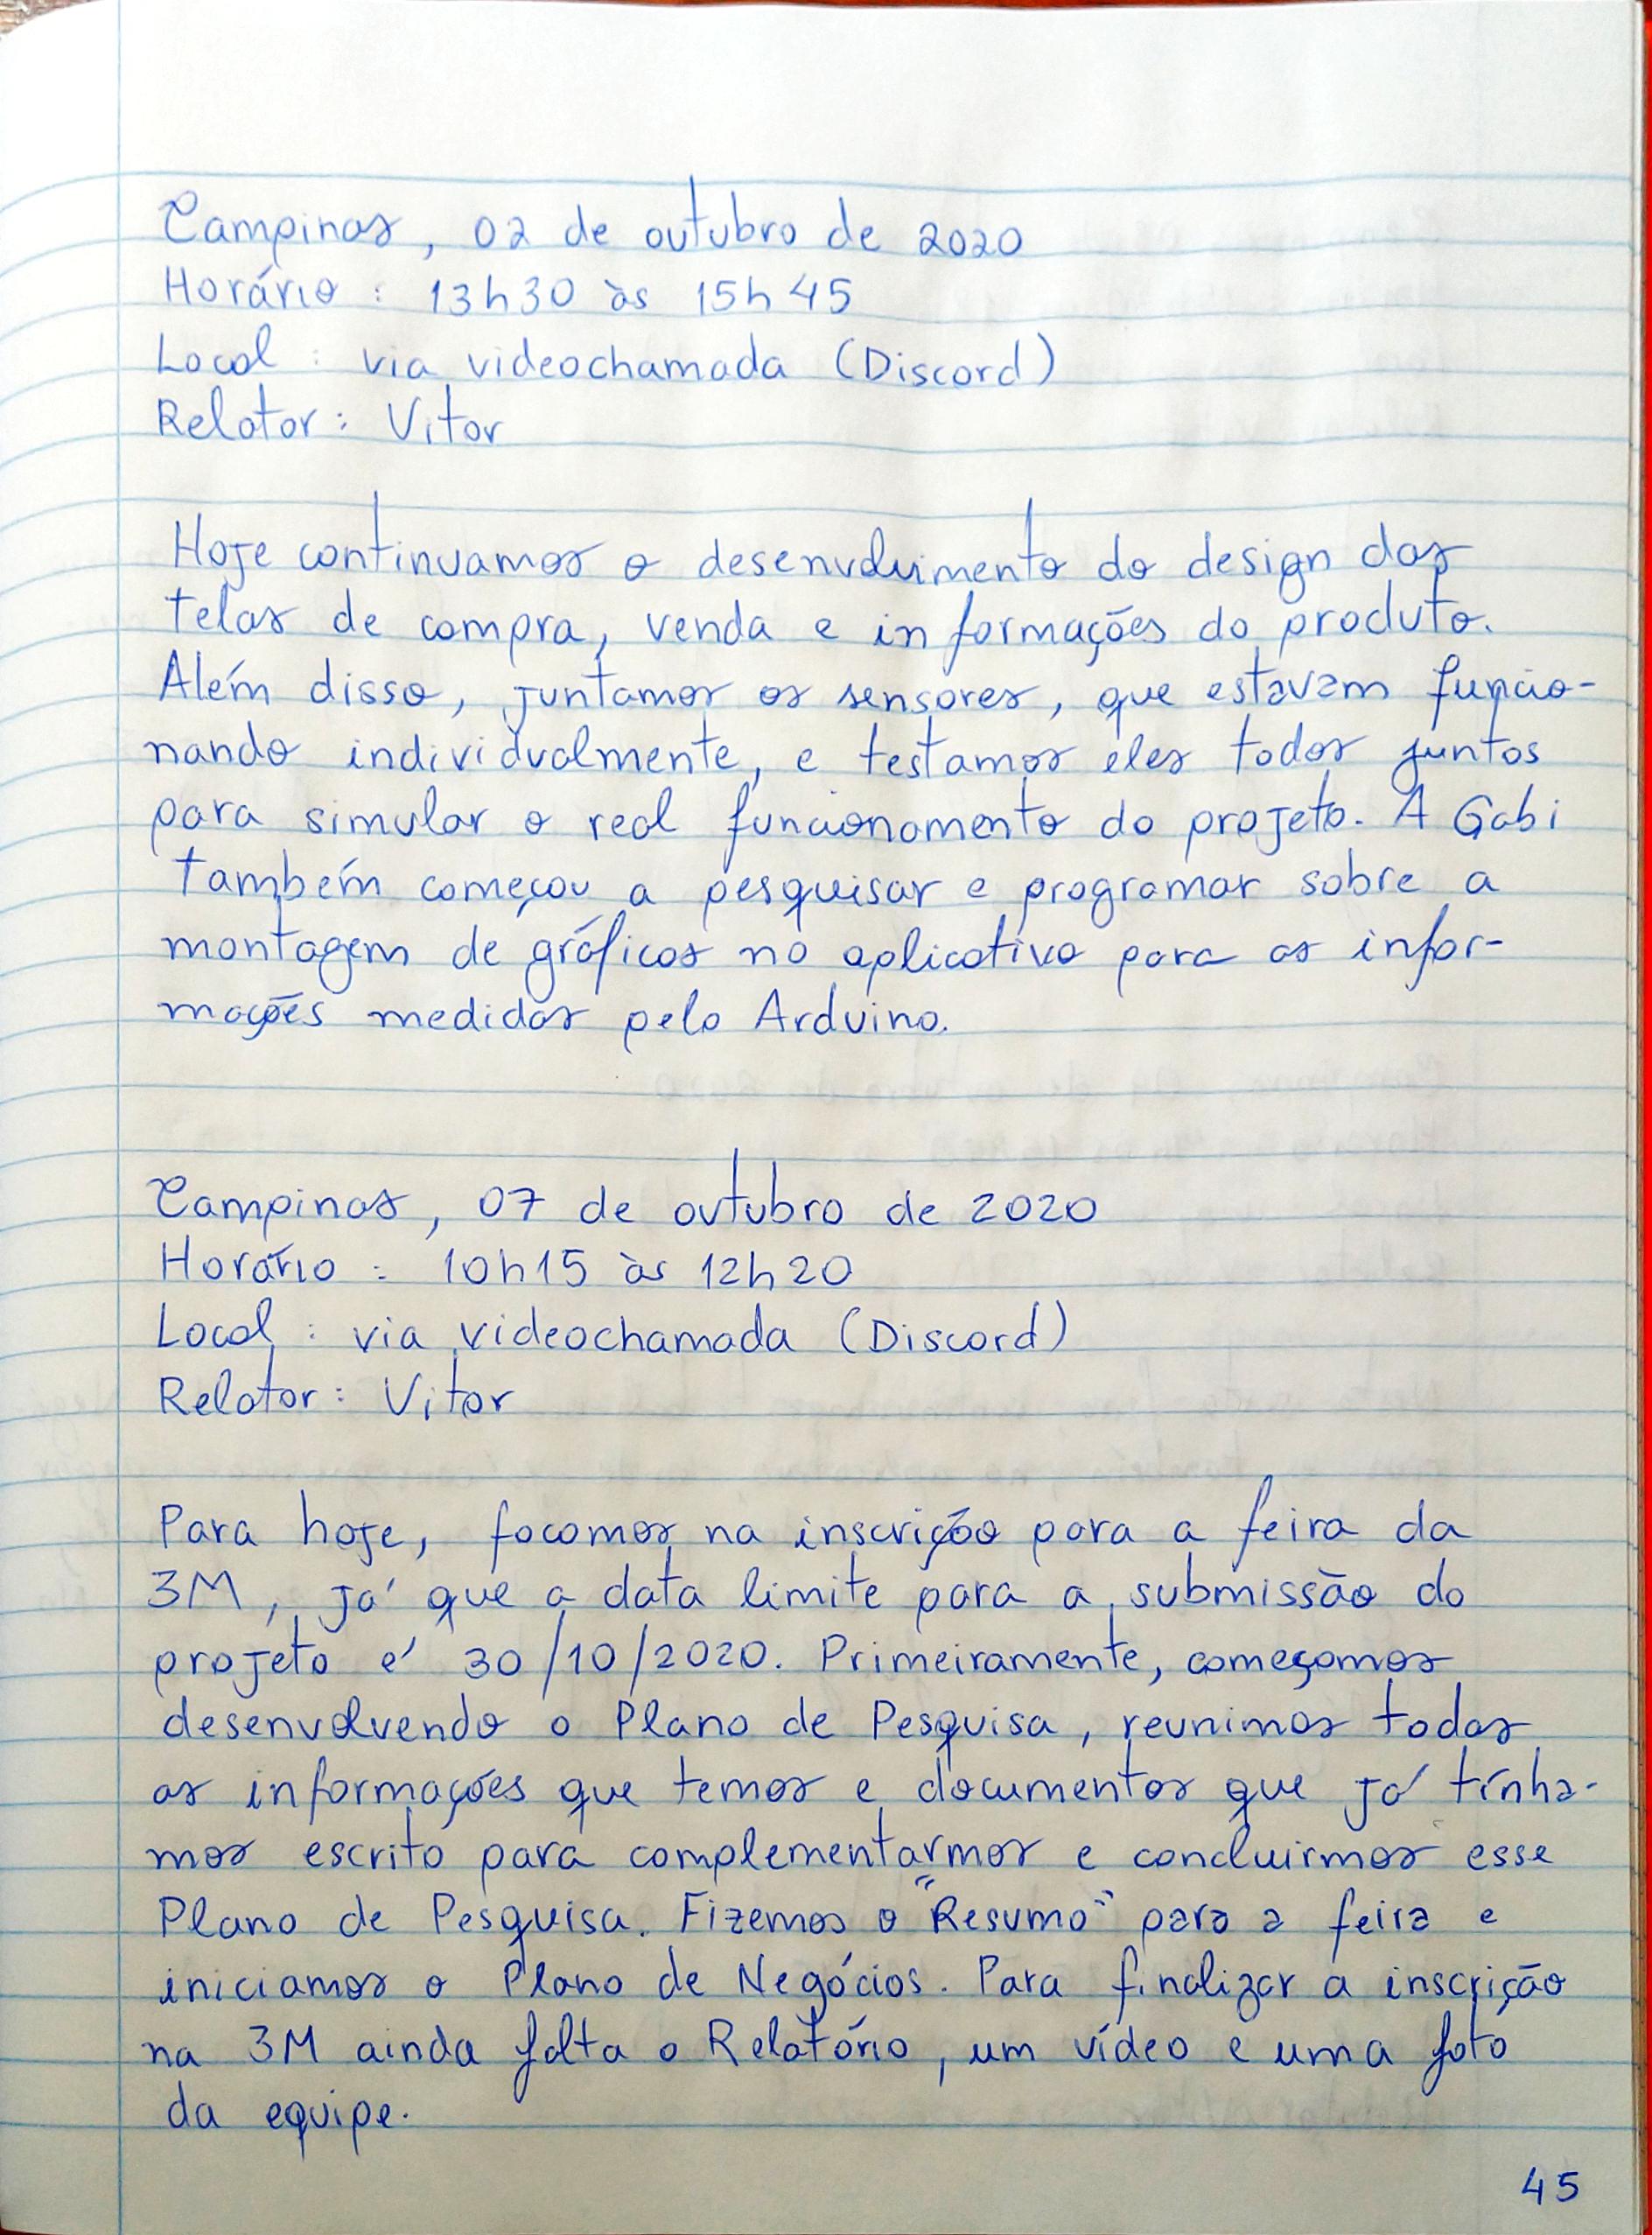 Campinas, 02 de outubro de 2020
Horário : 13h30 às 15h45
Local : via videochamada (Discord)
Relator : Vitor
Hoje continuamos o desenvolvimento do design das
telas de compra, venda e informações do produto.
Além disso, juntamos os sensores, que estavam funcio-
nando individualmente, e testamos eles todos juntos
para simular o real funcionamento do projeto. A Gabi
também começou a pesquisar e programar sobre a
montagem de gráficos no aplicativo para as infor-
mações medidas pelo Arduino.
Campinas, 07 de outubro de 2020
Horário : 10h15 às 12h20
Local : via videochamada (Discord)
Relator : Vitor
Para hoje, focamos na inscrição para a feira da
3M, já que a data limite para a submissão do
projeto é 30/10/2020. Primeiramente, começamos
desenvolvendo o Plano de Pesquisa, reunimos todas
as informações que temos e documentos que já tínha-
mos escrito para complementarmos e concluirmos esse
Plano de Pesquisa. Fizemos o "Resumo" para a feira e
iniciamos o Plano de Negócios. Para finalizar a inscrição
na 3M ainda falta o Relatório, um vídeo e uma foto
da equipe.
45